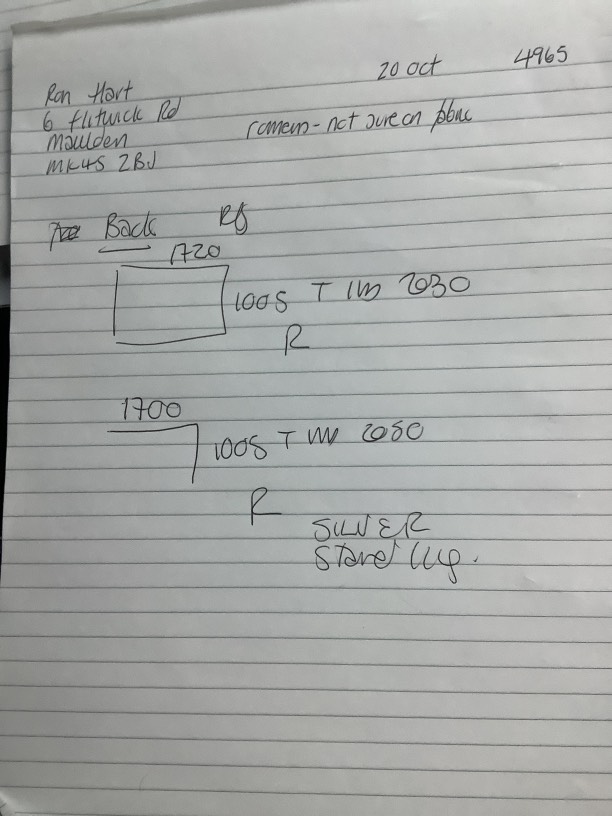 20 Oct 4965
Ron Hart
6 flitwick Rd
Maulden
MK45 2BJ
romens - not sure on fabric
Back
1720
100S T 2030
R
1700
100S T 2050
R
SILVER
Stand